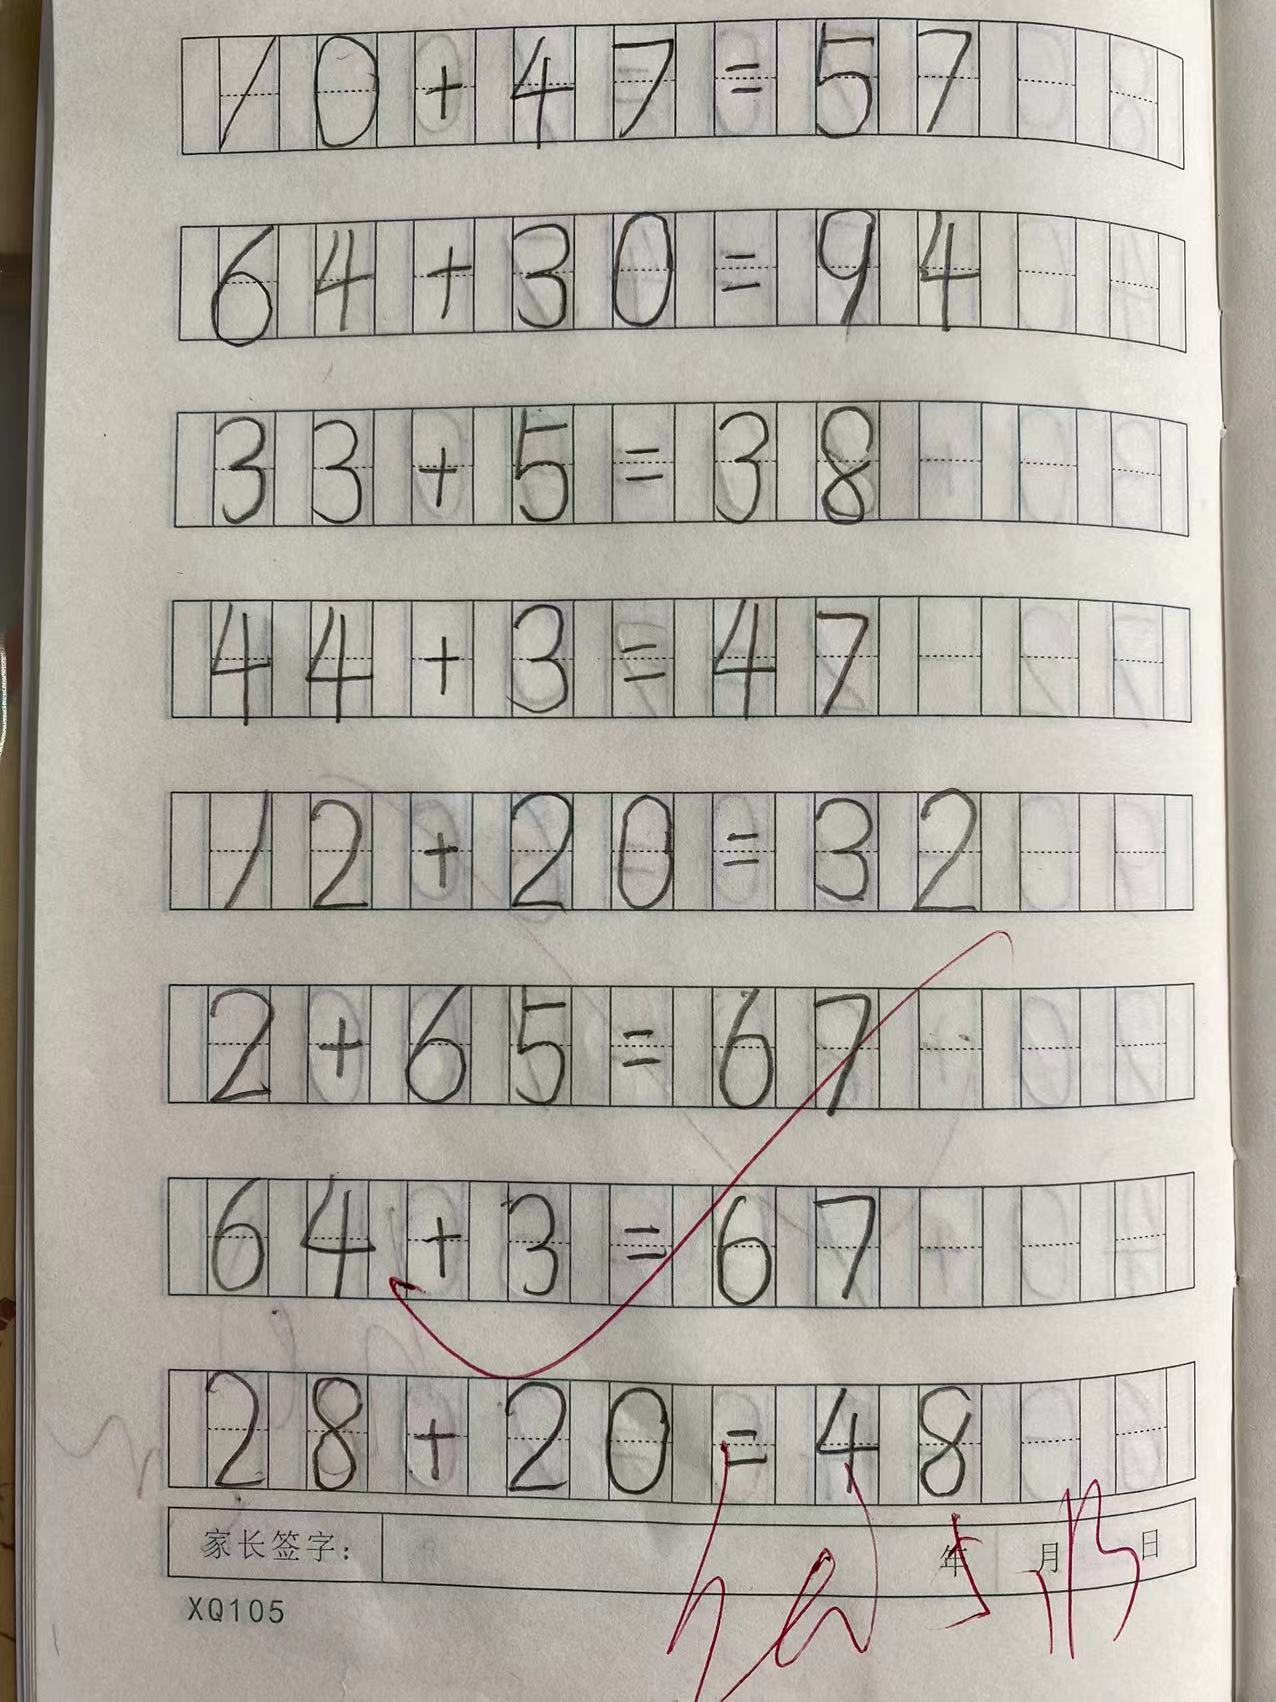 10+47=57
64+30=94
33+5=38
44+3=47
12+20=32
2+65=67
64+3=67
28+20=48
家长签字： 年 月 日
XQ105